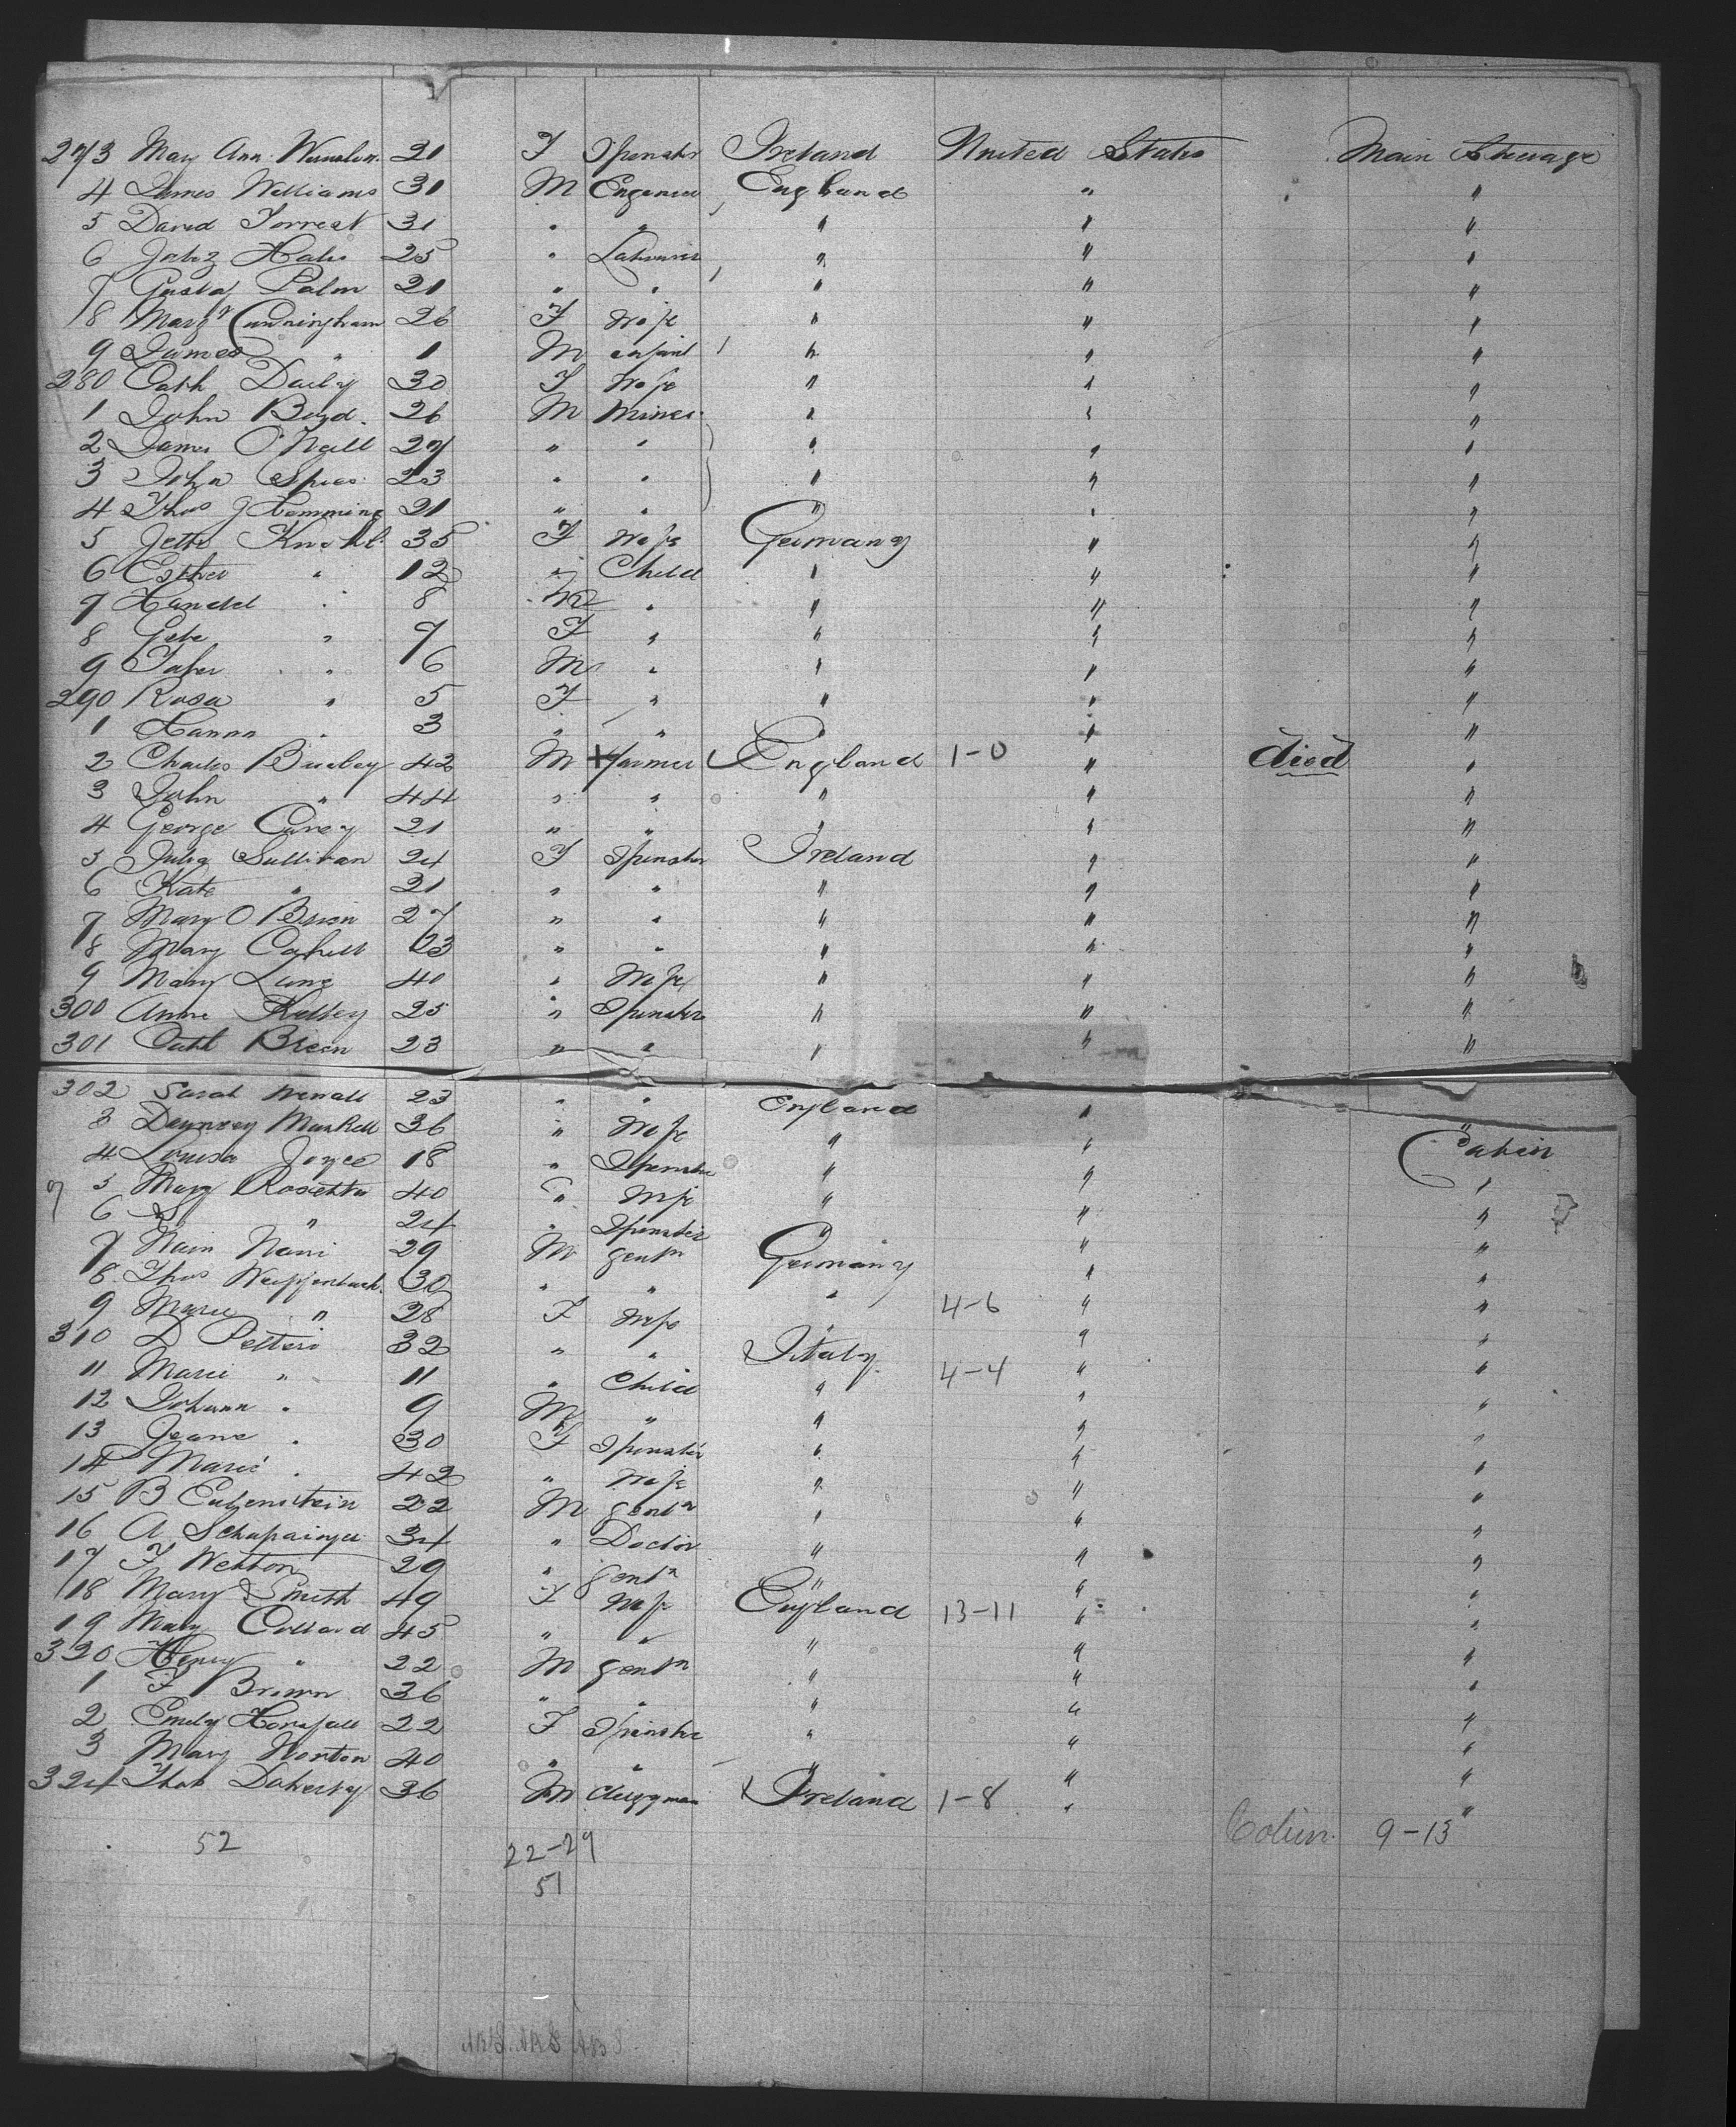 273 Mary Ann 21 F Spinster Ireland United States Main Steerage
4 James Williams 31 M Engineer England " "
5 David Forrest 31 " " " " "
6 Jabez Hales 25 " Labourer " " "
7 Gustaf Palm 21 " " " " "
8 Margt Cunningham 26 F Wife " " "
9 James " 1 M infant " " "
280 Cath Daily 30 F Wife " " "
1 John Boyd 26 M Miner " " "
2 James O'Neill 27 " " " " "
3 John Spies 23 " " " " "
4 Thos J Hemming 21 " " " " "
5 Jette 35 F Wife Germany " "
6 Esther " 12 " Child " " "
7 " 8 M " " " "
8 " 7 F " " " "
9 " 6 M " " " "
290 Rosa " 5 F " " " "
1 Hanna " 3 " " " " "
2 Charles 42 M Farmer England 1-0 " died "
3 John " 44 " " " " "
4 George Carey 21 " " " " "
5 Julia Sullivan 24 F Spinster Ireland " "
6 Kate " 21 " " " " "
7 Mary O Brien 27 " " " " "
8 Mary Cahill 23 " " " " "
9 Mary Lane 40 " Wife " " "
300 Anne Kelley 25 " Spinster " " "
301 Cath Breen 23 " " " " "
302 Sarah 23 " " England " "
3 Maskell 36 " Wife " " Cabin
4 Louisa Joyce 18 " Spinster " " "
5 Mary Rosietta 40 " Wife " " "
6 " 24 " Spinster " " "
7 Nain Nani 29 M Gentn Germany " "
8 Thos Weiffenbach 30 " " " " "
9 Marie " 28 F Wife " 4-6 " "
310 D Pelteri 32 " " Italy " "
11 Marie " 11 " Child " 4-4 " "
12 Johann " 9 M " " " "
13 Jeane " 30 F Spinster " " "
14 Marie " 42 " Wife " " "
15 B 22 M Gentn " " "
16 A 34 " Doctor " " "
17 F Wetton 29 " Gentn " " "
18 Mary Smith 49 F Wife England 13-11 " "
19 Mary Collard 45 " " " " "
320 Henry " 22 M Gentn " " "
1 F Brown 36 " " " " "
2 Emily Horsfall 22 F Spinster " " "
3 Mary Norton 40 " " " " "
324 Thos Doherty 36 M Clergyman Ireland 1-8 " "
52 22-29 9-13
51